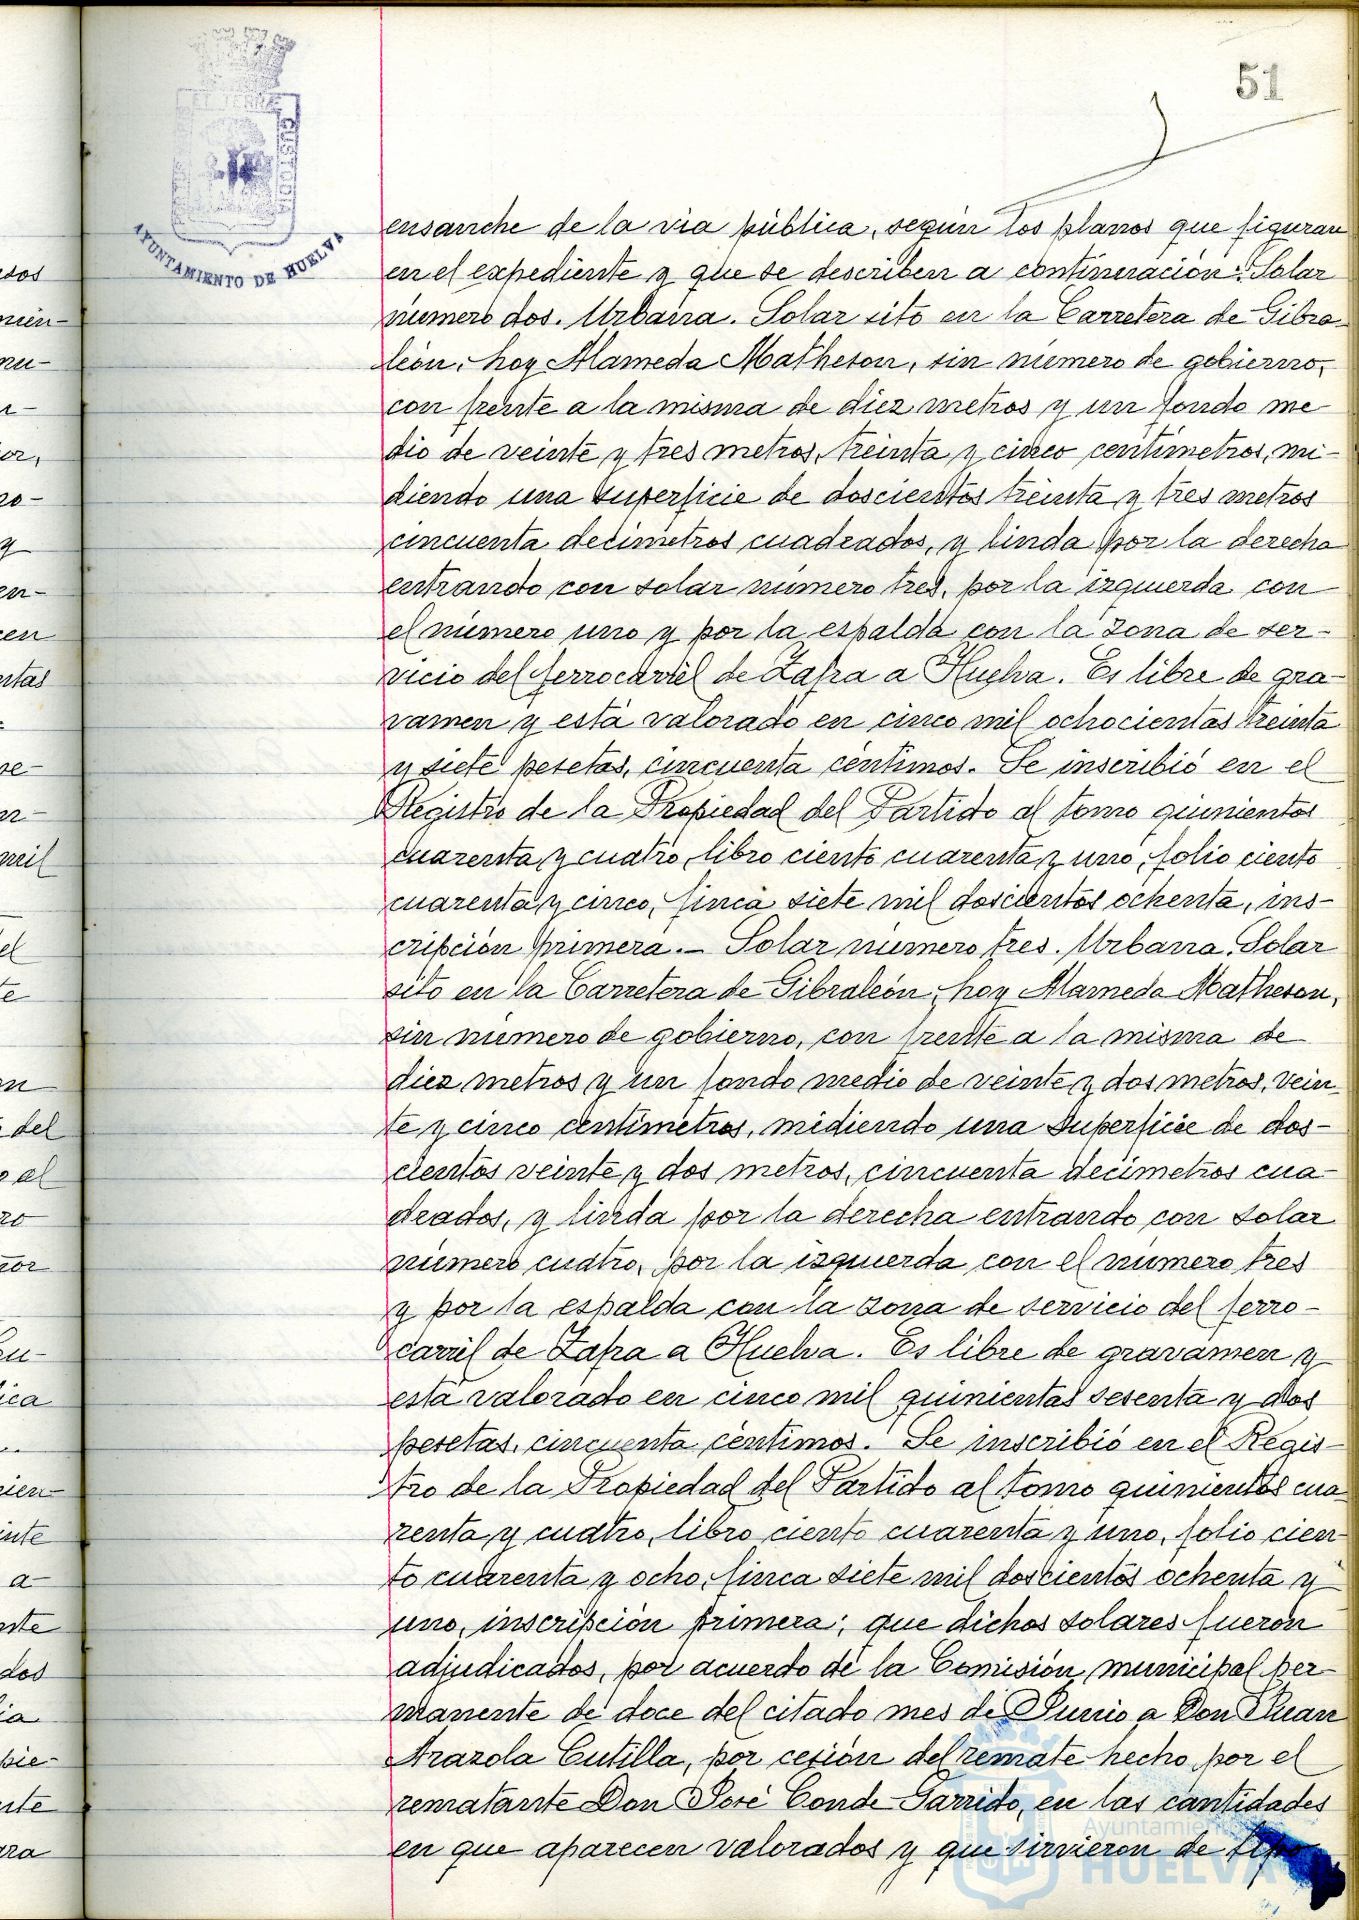 51
PORTUS MARIS
ET TERRÆ
CUSTODIA
AYUNTAMIENTO DE HUELVA
ensanche de la via pública, según los planos que figuran
en el expediente y que se describen a continuación: Solar
número dos. Urbana. Solar sito en la Carretera de Gibra-
león, hoy Alameda Matheson, sin número de gobierno,
con frente a la misma de diez metros y un fondo me
dio de veinte y tres metros, treinta y cinco centímetros, mi-
diendo una superficie de doscientos treinta y tres metros
cincuenta decímetros cuadrados, y linda por la derecha
entrando con solar número tres, por la izquierda con
el número uno y por la espalda con la zona de ser-
vicio del ferrocarril de Zafra a Huelva. Es libre de gra-
vamen y está valorado en cinco mil ochocientas treinta
y siete pesetas, cincuenta céntimos. Se inscribió en el
Registro de la Propiedad del Partido al tomo quinientos
cuarenta y cuatro, libro ciento cuarenta y uno, folio ciento
cuarenta y cinco, finca siete mil doscientos ochenta, ins-
cripción primera.- Solar número tres. Urbana. Solar
sito en la Carretera de Gibraleón, hoy Alameda Matheson,
sin número de gobierno, con frente a la misma de
diez metros y un fondo medio de veinte y dos metros, vein-
te y cinco centímetros, midiendo una superficie de dos-
cientos veinte y dos metros, cincuenta decímetros cua-
drados, y linda por la derecha entrando con solar
número cuatro, por la izquierda con el número tres
y por la espalda con la zona de servicio del ferro-
carril de Zafra a Huelva. Es libre de gravamen y
está valorado en cinco mil quinientas sesenta y dos
pesetas, cincuenta céntimos. Se inscribió en el Regis-
tro de la Propiedad del Partido al tomo quinientos cua-
renta y cuatro, libro ciento cuarenta y uno, folio cien-
to cuarenta y ocho, finca siete mil doscientos ochenta y
uno, inscripción primera; que dichos solares fueron
adjudicados, por acuerdo de la Comisión municipal per-
manente de doce del citado mes de Junio a Don Juan
Arazola Cutilla, por cesión del remate hecho por el
rematante Don José Conde Garrido, en las cantidades
en que aparecen valorados y que sirvieron de tipo
Ayuntamiento
HUELVA